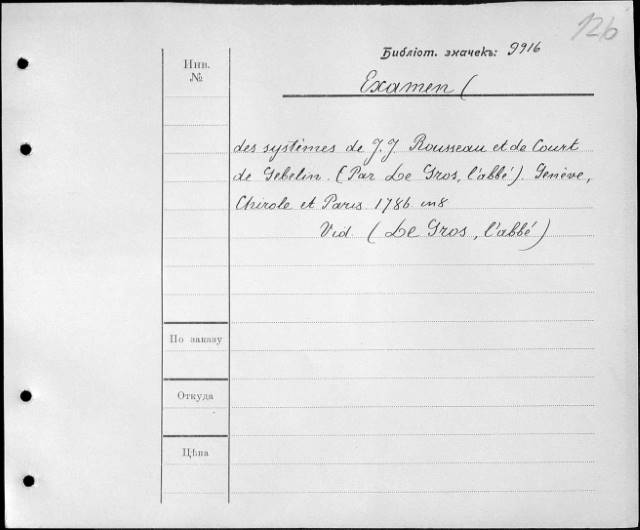 12b
Библіот. значекъ: 9916
Инв.
№
Examen (
des systèmes de J. J Rousseau et de Court
de Gebelin. (Par Le Gros, l'abbé). Genève,
Chirole et Paris 1786 in 8
Vid. (Le Gros, l'abbé)
По заказу
Откуда
Цѣна